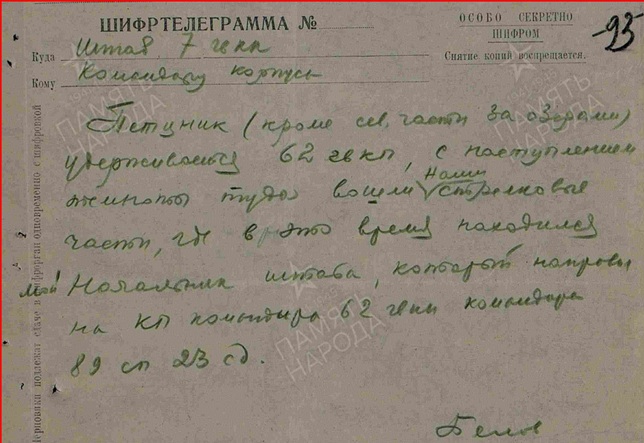 ШИФРТЕЛЕГРАММА №
ОСОБО СЕКРЕТНО
ШИФРОМ
Снятие копий воспрещается.
-93
Куда Штаб 7 гвкк
Кому Командиру корпуса
Петцник (кроме сев. части за озерами)
удерживается 62 гвкп, с наступлением
темноты туда вошли наши стрелковые
части, где в это время находился
мой Начальник штаба, который направлен
на КП командира 62 гвкп командира
89 сп 23 сд.
Белов
Черновики подлежат сдаче в шифрорган одновременно с шифровкой
ПАМЯТЬ НАРОДА
ПАМЯТЬ НАРОДА
ПАМЯТЬ НАРОДА